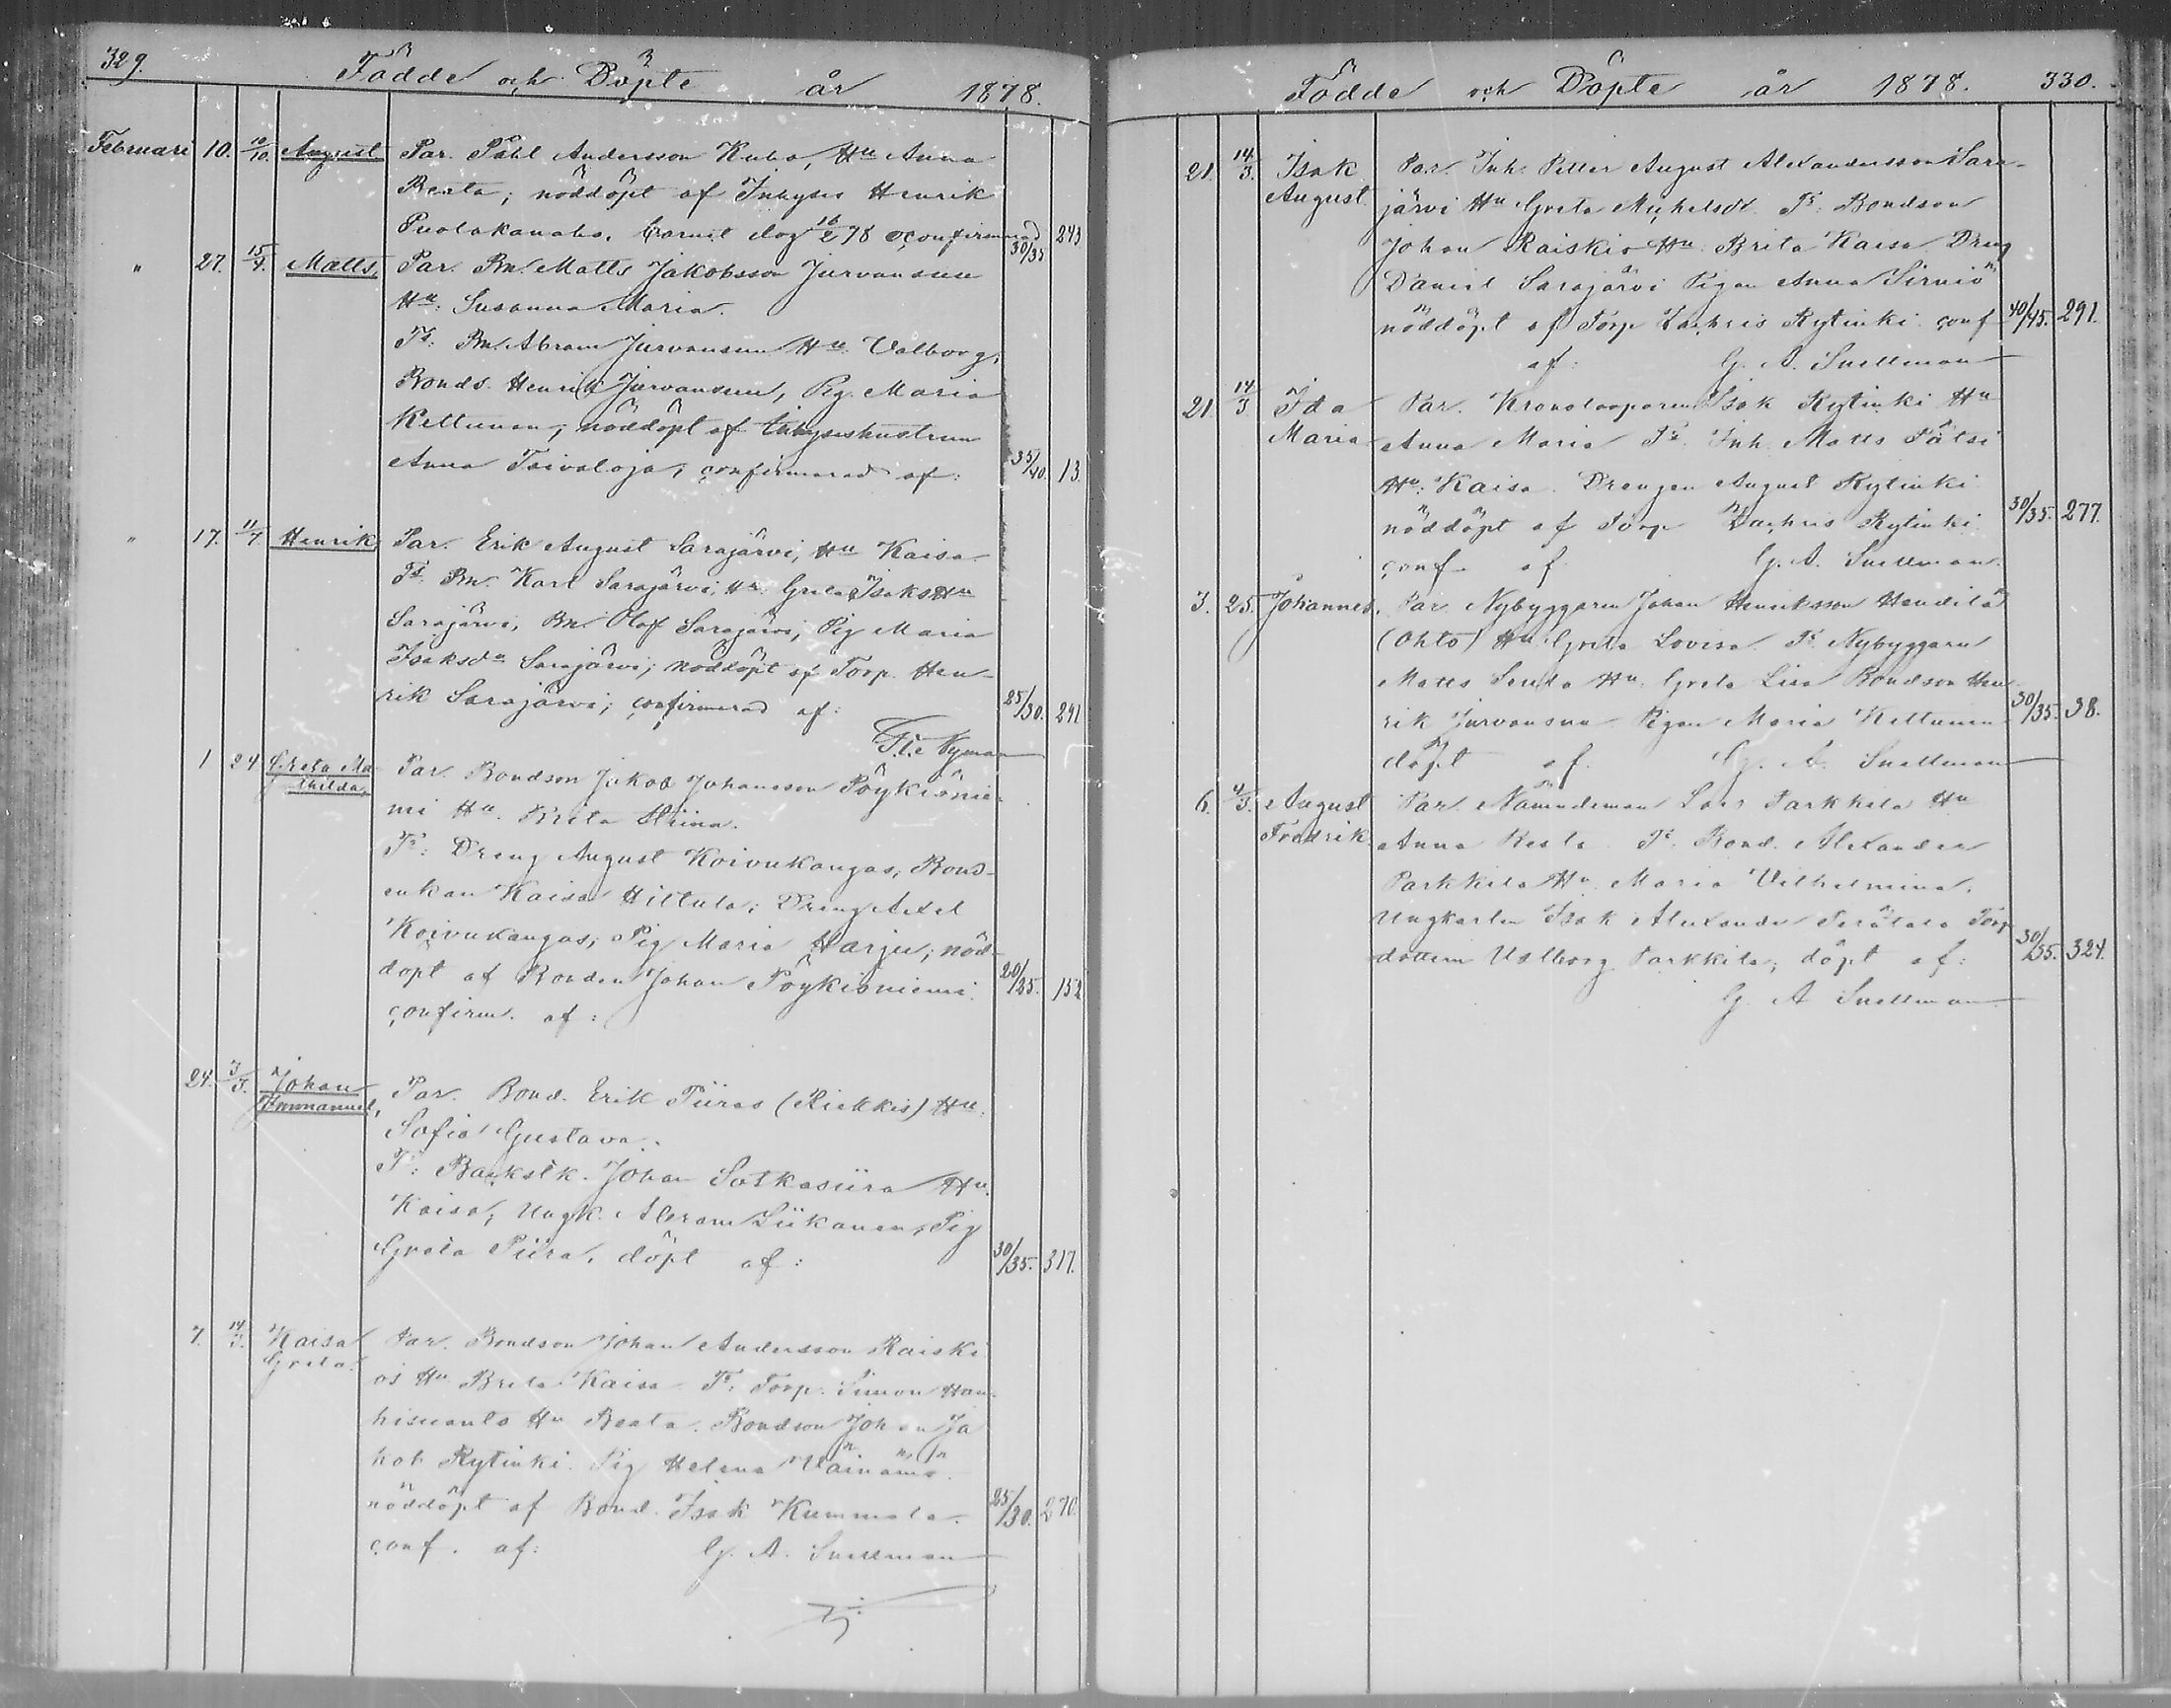 329.
Födde och Döpte år 1878.
Februari 10. 10/10. August Par. Påhl Andersson Kuha, Hu Anna
Beata; nöddöpt af Inhyses Henrik
Puolakanaho, barnet dog 16/2 78 oconfirmerad 30/35 243
" 27. 15/4. Matts, Par. Bn. Matts Jakobsson Jurvansuu
Hu: Susanna Maria.
Ts: Bn. Abram Jurvansuu Hu. Valborg,
Bonds. Henrik Jurvansuu, Pig. Maria
Kettunen, nöddöpt af Inhyseshustrun
Anna Taivaloja, confirmerad af: 35/40. 13.
" 17. 11/7. Henrik, Par. Erik August Sarajärvi, Hu Kaisa
Ts. Bn. Karl Sarajärvi, Hu. Greta, Isaks Hu
Sarajärvi, Bn. Olof Sarajärvi, Pig Maria
Isaksda Sarajärvi; nöddöpt af Torp. Hen-
rik Sarajärvi; confirmerad af: 25/30. 291
Nyman
1 24 Greta Ma-
thilda, Par. Bondson Jakob Johansson Pöykiönie-
mi Hu. Brita Stiina.
Ts: Dreng August Koivukangas, Bond-
enkan Kaisa Hiltula; Dreng Axel
Koivukangas; Pig Maria Harju; nöd-
döpt af Bonden Johan Pöykiöniemi. 20/25. 152
confirm. af:
24. 3/3. Johan
Emmanuel, Par. Bond. Erik Piiras (Riekkis) Hu.
Sofia Gustava.
Ts: Backstk. Johan Sotkasiira Hu.
Kaisa, Ungk. Abram Liikanen, Pig
Greta Piira, döpt af: 30/35. 317.
7. 14/3. Kaisa
Greta. Par. Bondson Johan Andersson Raiski-
os Hu Brita Kaisa Ts: Torp. Simon Han-
hisuanto Hu Beata. Bondson Johan Ja
kob Rytinki. Pig Helena Väinämö.
nöddöpt af Bond. Isak Kummala. 25/30. 270.
conf. af: G. A. Snellman
Födde och Döpte år 1878. 330.
21. 14/3. Isak
August. Par. Inh. Petter August Alexandersson Sara-
järvi Hu Greta Michelsdr. Ts: Bondson
Johan Raiskio Hu. Brita Kaisa Dreng
Daniel Sarajärvi Pigan Anna Sirniö
nöddöpt af Torp Zachris Rytinki. conf 40/45. 291.
af: G. A. Snellman
21. 14/3. Ida
Maria Par. Kronolooparen Isak Rytinki Hu
Anna Maria Ts. Inh. Matts Pätsi
Hu: Kaisa. Drengen August Rytinki
nöddöpt af Torp Zachris Rytinki 30/35. 277.
conf. af G. A. Snellman.
3. 25. Johannes. Par. Nybyggaren Johan Henriksson Handilä
(Ohto) Hu Greta Lovisa. Ts. Nybyggaren
Matts Hu. Greta Lisa Bondson Hen
rik Jurvansuu Pigan Maria Kettunen 30/35. 38.
döpt af. G. A. Snellman
6. 4/3. August
Fredrik. Par. Nämndeman Lars Parkkila Hu
Anna Beata Ts. Bond. Alexander
Parkkila Hu. Maria Vilhelmina.
Ungkarlen Isak Alexander Perätalo Torp
dottern Valborg Parkkila, döpt af: 30/35. 324.
G. A Snellman